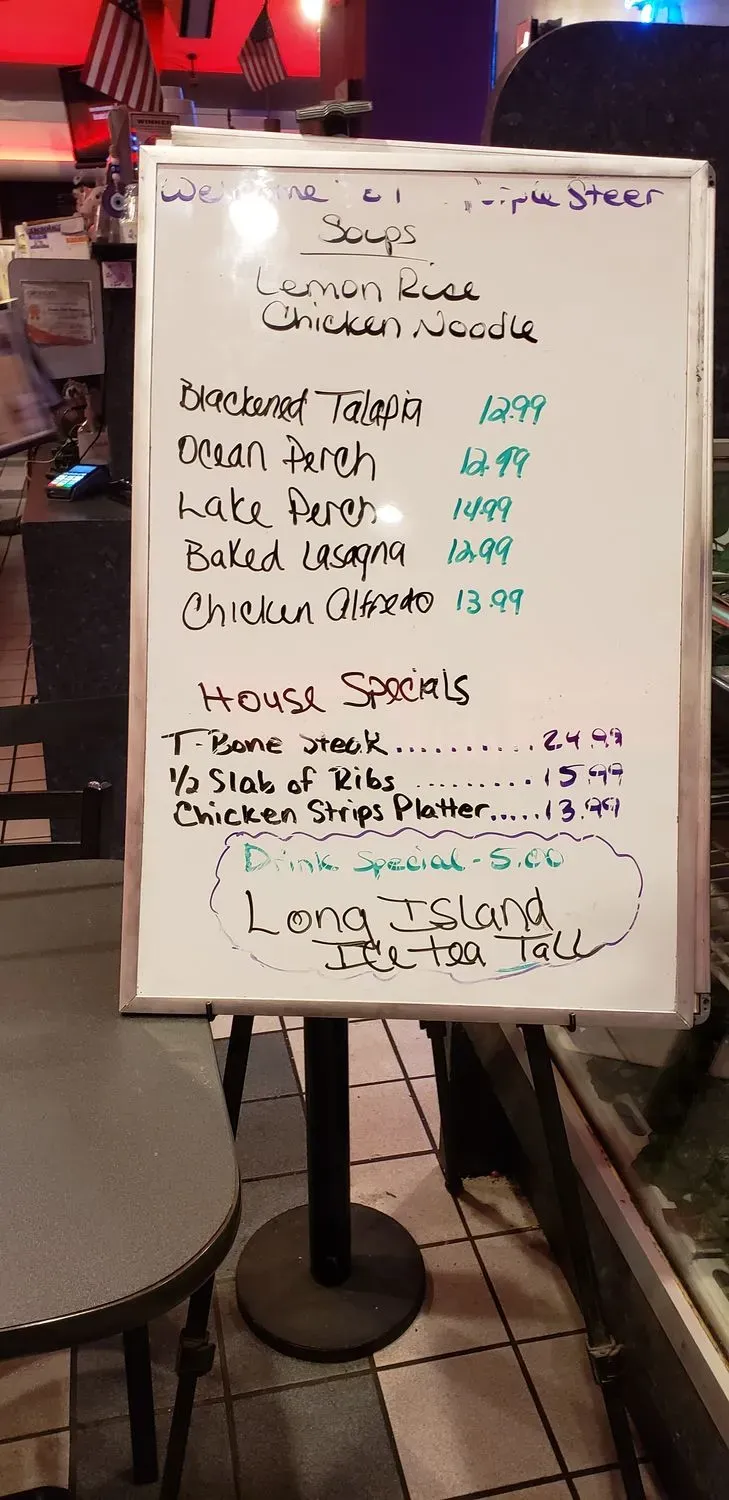 WINNER
Steer
Soups
Lemon Rice
Chicken Noodle
Blackened Talapia 12.99
Ocean Perch 12.99
Lake Perch 14.99
Baked Lasagna 12.99
Chicken Alfredo 13.99
House Specials
T-Bone Steak .......... 24.99
1/2 Slab of Ribs ......... 15.99
Chicken Strips Platter ..... 13.99
Drink Special - 5.00
Long Island
Ice tea Tall